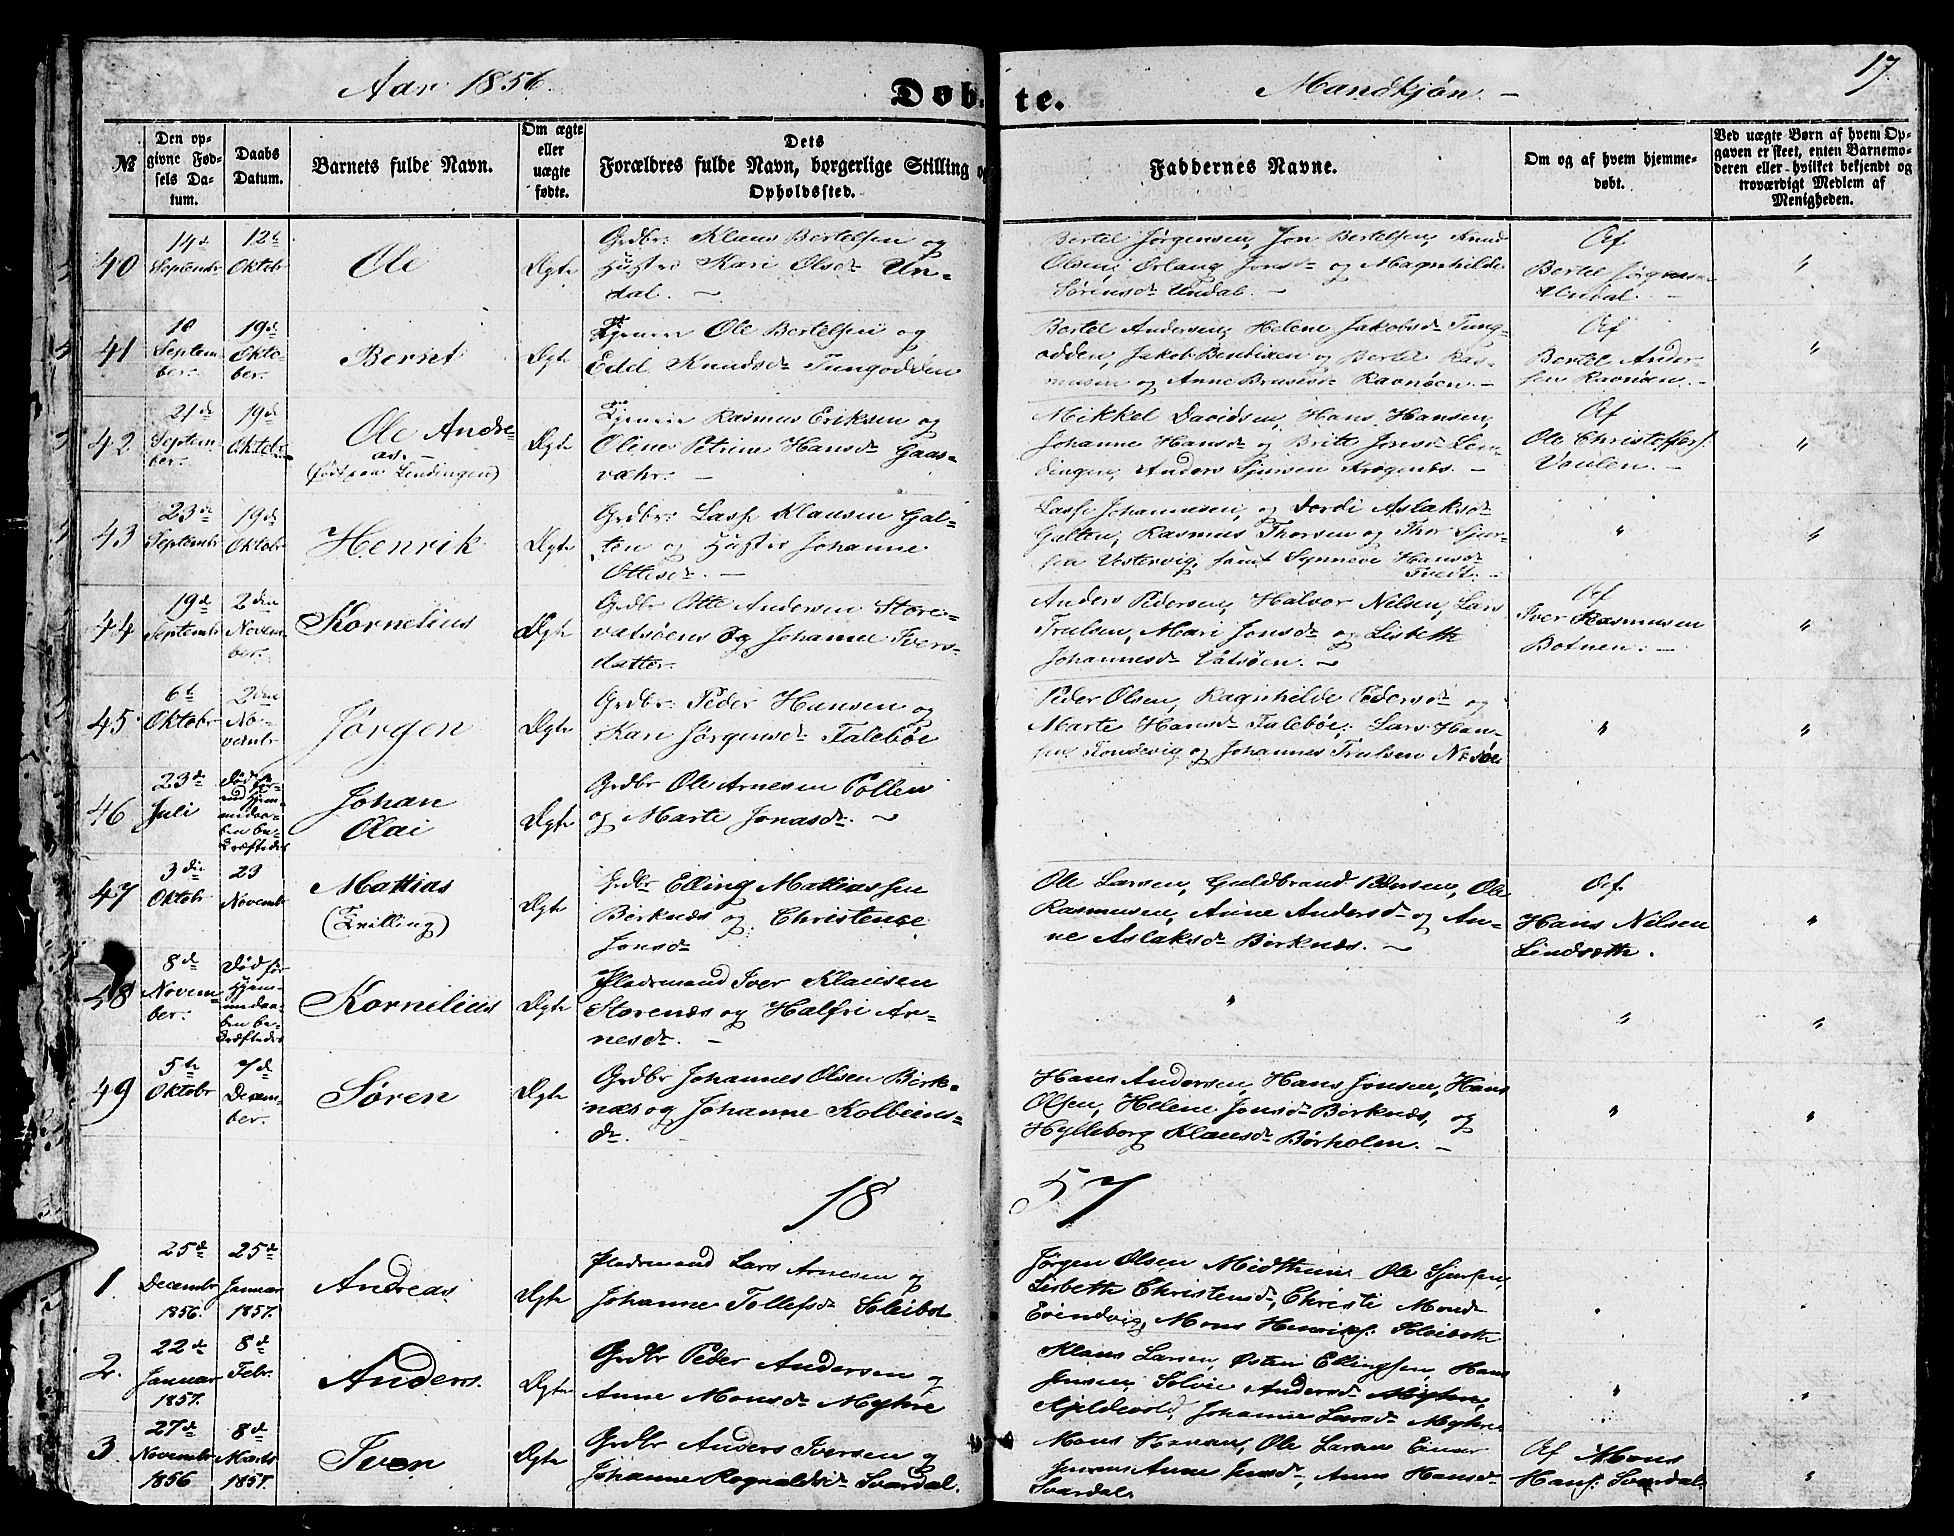 17
Aar 1856. Døbte. Mandkjøn. –
№
Den opgivne Fødsels Datum.
Daabs Datum.
Barnets fulde Navn.
Om ægte eller uægte fødte.
Dets Forældres fulde Navn, borgerlige Stilling og Opholdssted.
Faddernes Navne.
Om og af hvem hjemmedøbt.
Ved uægte Børn af hvem Opgaven er skeet, enten Barnemoderen eller hvilket bekjendt og troværdigt Medlem af Menigheden.
40
14de Septembr
12te Oktobr
Ole
Ægte
Grdbr: Klaus Bertelsen og
Hustru Kari Olsdr Un-
dal. –
Bertel Jørgensen, Jon Bertelsen, Knud
Olsen, Erlang Jonsdr og Magnhilde
Sørensdr Undal. –
Af
Bertel Jørgensen
Undal. –
"
41
10
Septem-
ber.
19de
Okto-
ber.
Bernt
Ægte
Tjener Ole Bertelsen og
Edel Knudsdr Tungodden
Bertel Andersen, Helene Jakobsdr Tung-
odden, Jakob Bendixen og Bertel Ras-
musen og Anne Brusesdr Ravnøen. –
Af
Bertel Ander-
sen Ravnøen. –
"
42
21de
Septem-
ber.
19de
Oktober
Ole Andre-
as. –
(født paa Lendingen)
Ægte
Tjener Rasmus Eriksen og
Oline Petrine Hansdr Gaas-
vær. –
Mikkel Davidsen, Hans Hansen,
Johanne Hansdr og Britte Jonsdr Len-
dingen, Anders Sjursen Krøgenæs. –
Af
Ole Christoffers.
Vaulen. –
"
43
23de
Septembr
19de
Oktobr
Henrik
Ægte
Grdbr: Lasse Klausen Gul-
ten og Hustru Johanne
Ottesdr. –
Lasse Johannesen, og Dordi Aslaksdr
Gulten, Rasmus Thorsen og Thor Sjur-
sen Vestervig, samt Synneve Hansdr
Tveit. –
"
"
44
19de
Septembr
2den
Novem-
ber.
Kornelius
Ægte
Grdbr Otte Andersen Store-
vatsøens og Johanne Ivers-
datter.
Anders Pedersen, Halvor Nilsen, Lars
Trulsen, Mari Jonsdr og Lisbeth
Johannesdr Vatsøen. –
Af
Iver Rasmusen
Botnen. –
"
45
6te
Oktobr
2den
No-
vembr
Jørgen
Ægte
Grdbr: Peder Hansen og
Kari Jørgensdr Falebøe
Peder Olsen, Ragnhilde Pedersdr og
Marte Hansdr Falebøe, Lars Han-
sen Tondevig og Johannes Trulsen Nesøe
"
"
46
23de
Juli
Død før-
end Hjem-
medaa-
ben be-
kræftedes
Johan
Olai
Ægte
Grdbr Ole Arnesen Pollen
og Marte Jonasdr. –
47
3die
Oktobr
23
Novembr
Mattias
(Tvilling)
Ægte
Grdbr Elling Mattiassen
Birknæs og Christense
Jonsdr
Ole Larsen, Guldbrand Pedersen, Ole
Rasmusen, Anne Andersdr og An-
ne Aslaksdr Birknæs. –
Af
Hans Nilsen
Lindseth.
"
48
8de
Novem-
ber.
Død før
Hjem-
medaa-
ben be-
kræftedes
Kornelius
Ægte
Pladsmand Iver Klausen
Storenæs og Halfri Ar-
nesdr. –
"
"
"
49
5te
Oktobr
7de
Decem-
ber.
Søren
Ægte
Grdbr Johannes Olsen Birk-
næs og Johanne Kolbeins-
dr. –
Hans Andersen, Hans Jonsen, Hans
Olsen, Helene Jonsdr Birknæs, og
Hylleborg Klausdr Børholm. –
"
"
18 57
1.
25de
Decembr
1856.
25de
Januar
1857.
Andreas
Ægte
Pladsmand Lars Arnesen og
Johanne Tollefsdr Sleibot
Jørgen Olsen Midthun Ole Sjursen,
Lisbeth Christensdr, Christi Monsdr
Eivindvig, Mons Henriks. Sleibot
"
"
2.
22de
Januar
1857.
8de
Febr.
Anders.
Ægte
Grdbr Peder Andersen og
Anne Monsdr Myhre
Klaus Larsen, Østen Ellingsen, Hans
Jensen, Solvie Andersdr Myhre,
Kjeldevold, Johanne Larsdr Myhre
"
"
3.
27de
Novembr
1856
8de
Marts
1857.
Iver
Ægte
Grdbr Anders Iversen og
Johanne Rognaldsdr Svardal.
Mons Hansen, Ole Larsen Einer
Jensens Anne Jensdr, Anne Hansdr
Svardal.
Af Mons
Hans. Svardal.
"